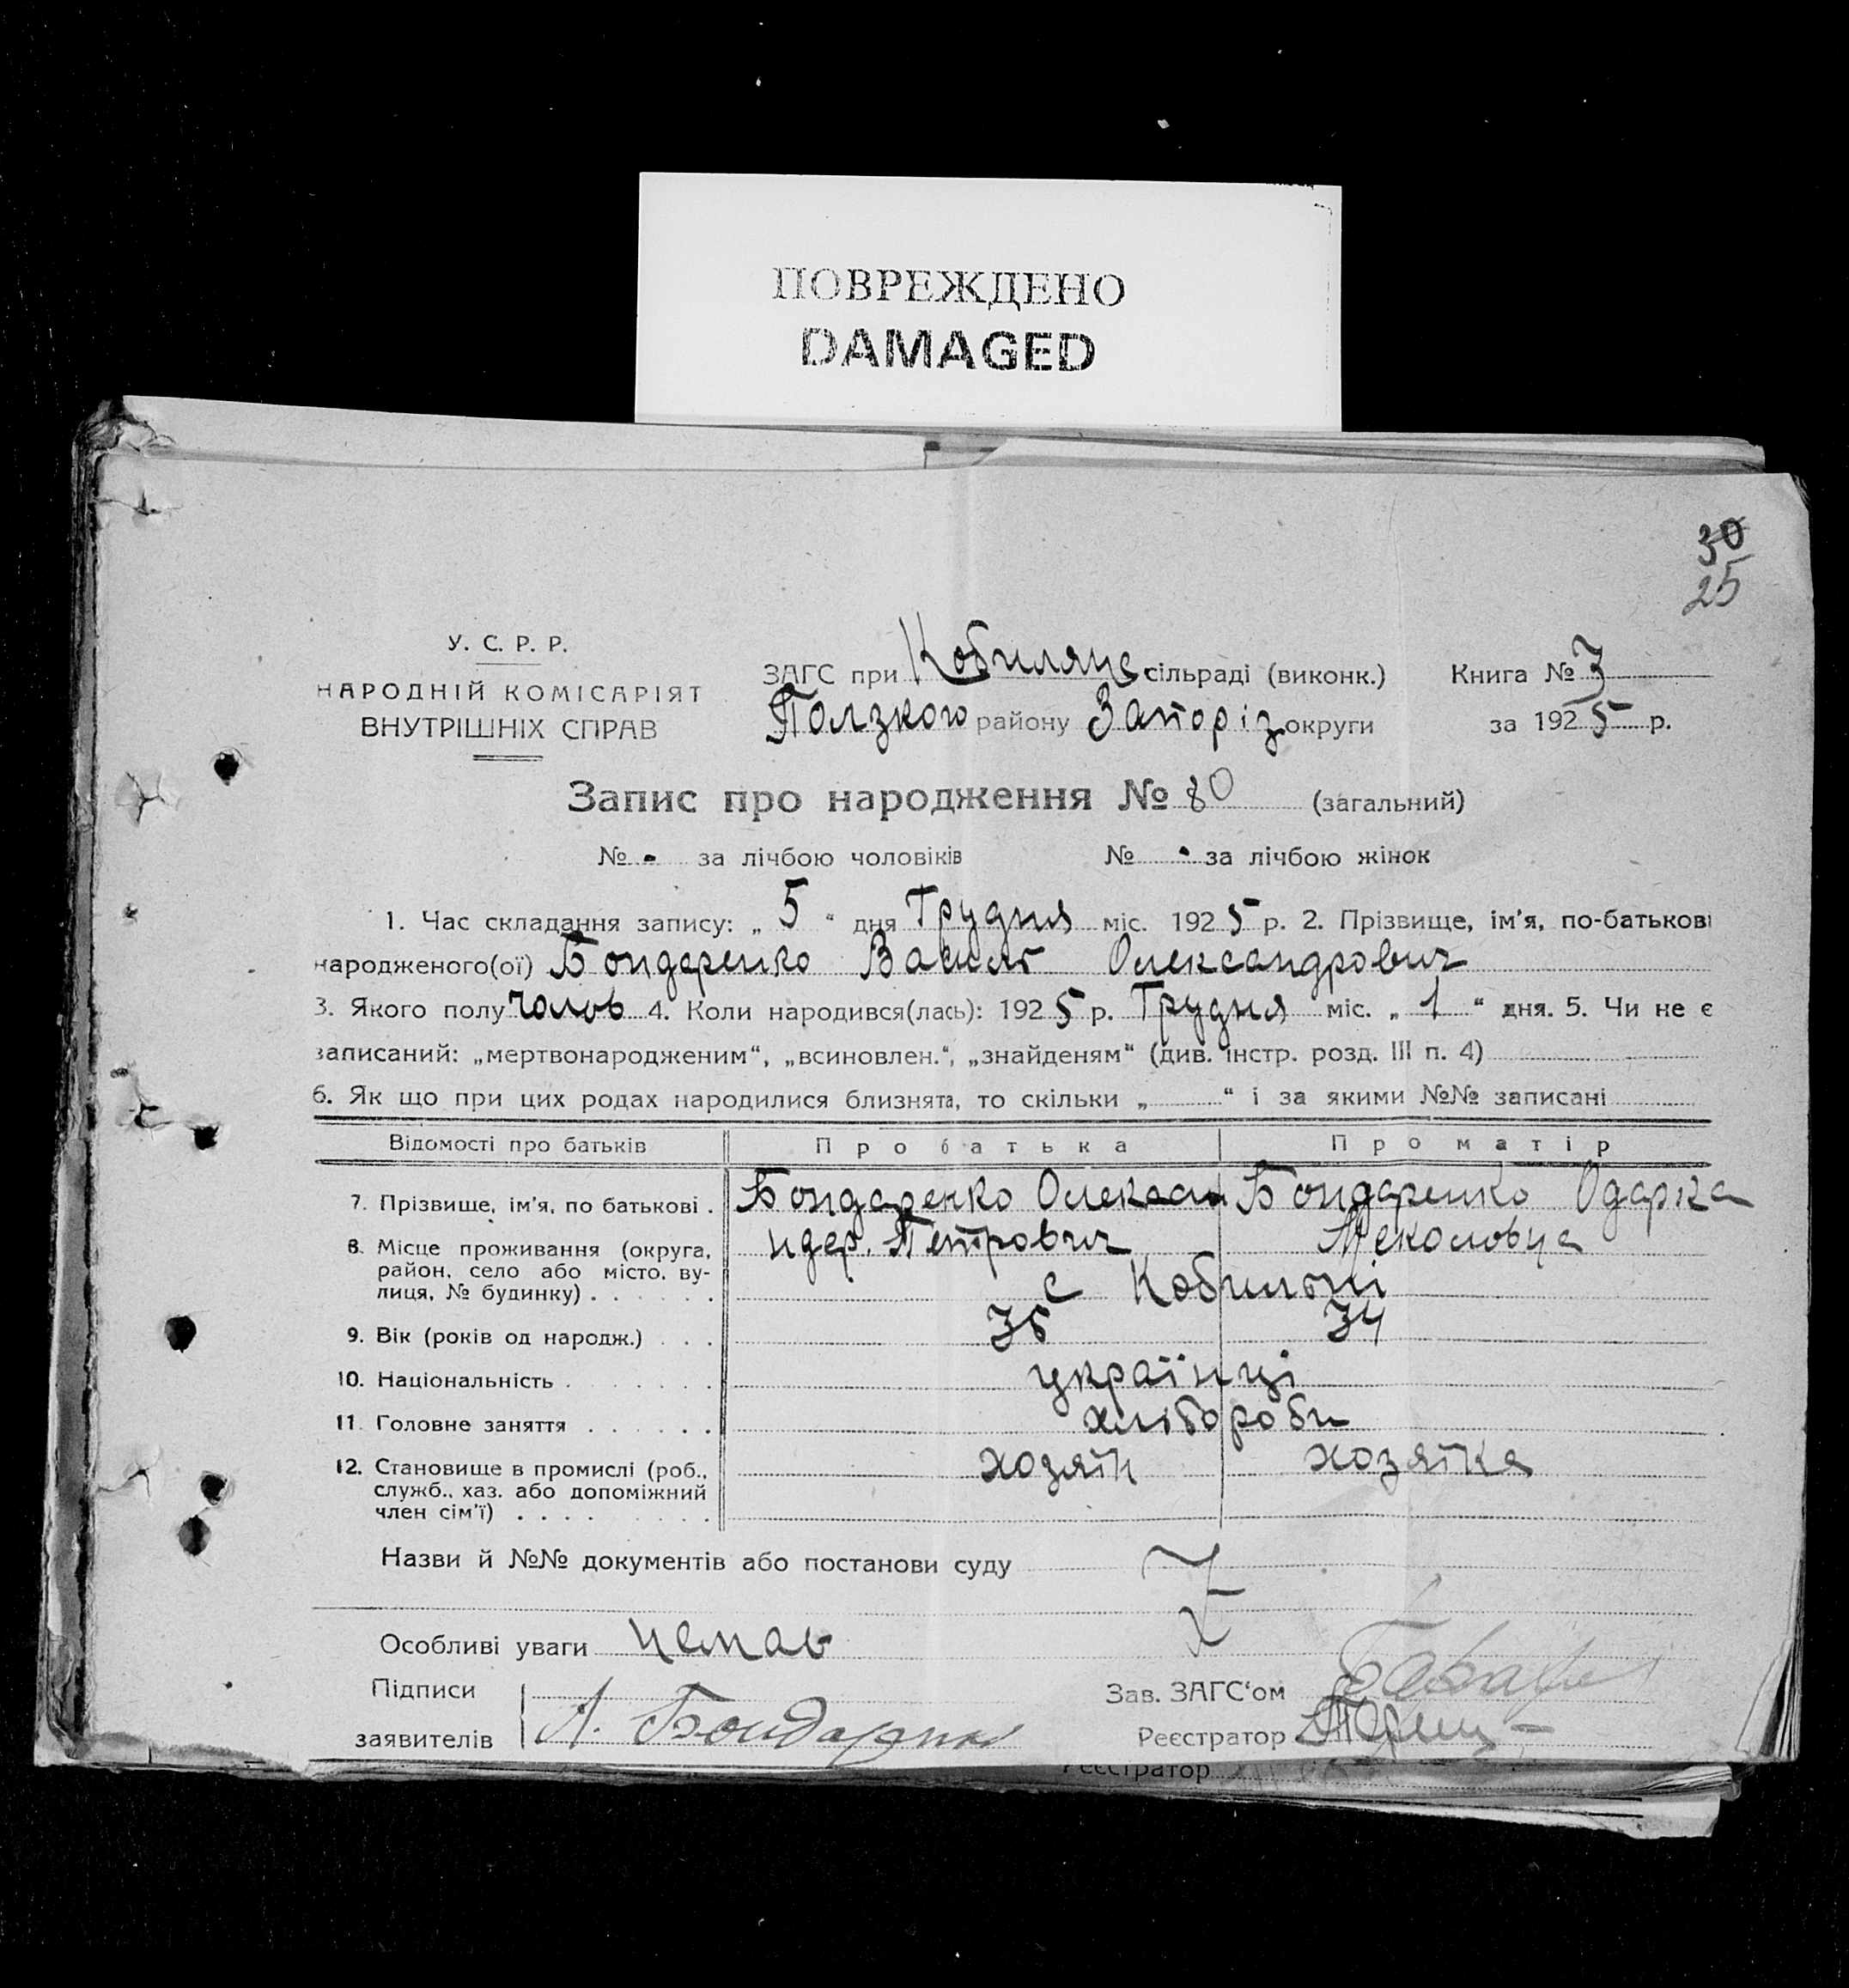 ПОВРЕЖДЕНО
DAMAGED
30
25
У. С. Р. Р.
НАРОДНІЙ КОМІСАРІЯТ
ВНУТРІШНІХ СПРАВ
ЗАГС при Кобиляне сільраді (виконк.) Книга № 3
району Запоріз округи за 1925 р.
Запис про народження № 80 (загальний)
№ - за лічбою чоловіків № - за лічбою жінок
1. Час складання запису: „ 5 “ дня Грудня міс. 1925 р. 2. Прізвище, ім’я, по-батькові
народженого(ої) Бондаренко Василь Олександрович
3. Якого полу чолов 4. Коли народився(лась): 1925 р. Грудня міс. „ 1 “ дня. 5. Чи не є
записаний: „мертвонародженим“, „всиновлен.“, „знайденям“ (див. інстр. розд. III п. 4)
6. Як що при цих родах народилися близнята, то скільки „ “ і за якими №№ записані
Відомості про батьків Про батька Про матір
7. Прізвище, ім’я, по батькові . Бондаренко Олексан Бондаренко Одарка
ндер. Петрович Меколовна
8. Місце проживання (округа,
район, село або місто, ву-
лиця, № будинку) . . . . . . с Кобильні
9. Вік (років од народж.) . . . 34
10. Національність . . . . . . . українці
11. Головне заняття . . . . . . хлібороби
12. Становище в промислі (роб., хозяїн хозяїка
служб., хаз. або допоміжний
член сім’ї) . . . . . . . .
Назви й №№ документів або постанови суду
Особливі уваги немає
Підписи Зав. ЗАГС‘ом
заявителів А. Бондаренко Реєстратор
Реєстратор